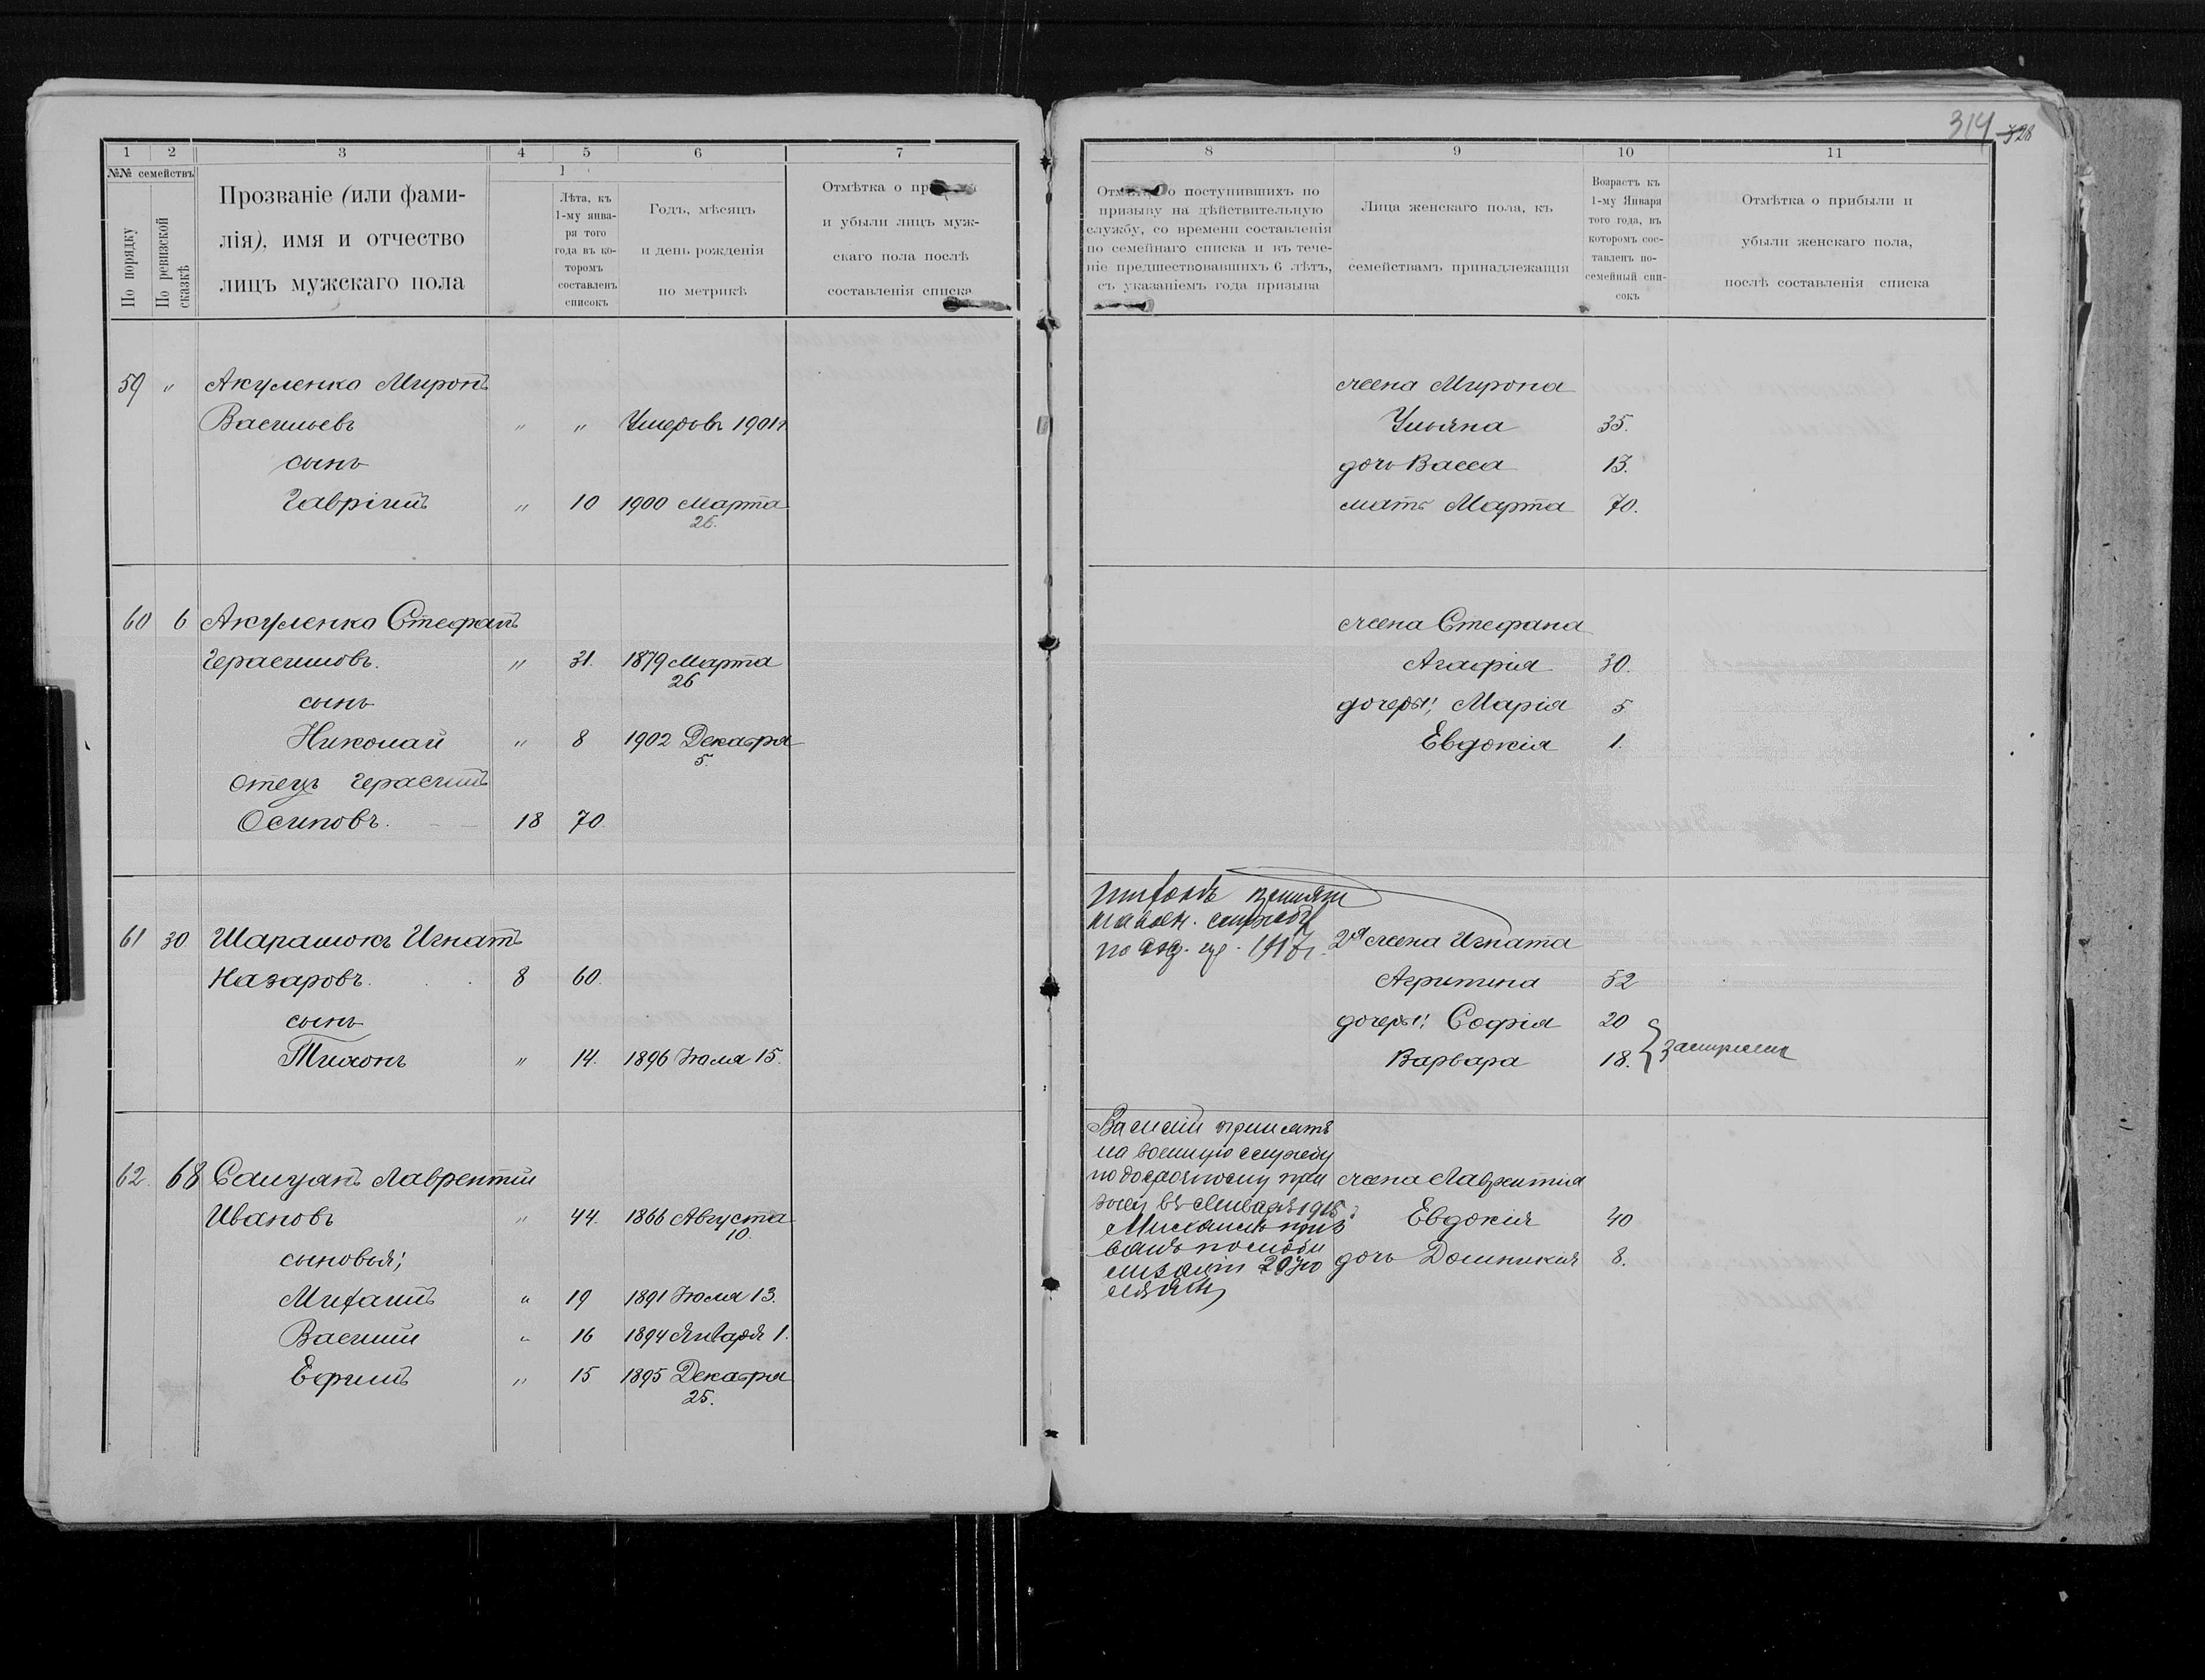 314 328
1 2 3 4 5 6 7
№№ семействъ
По порядку
По ревизской сказкѣ
Прозваніе (или фами-
лія), имя и отчество
лицъ мужскаго пола
Лѣта, къ
1-му янва-
ря того
года въ ко-
торомъ
составленъ
списокъ
Годъ, мѣсяцъ
и день рожденія
по метрикѣ
Отмѣтка о
и убыли лицъ муж-
скаго пола послѣ
составленія списка
59 " Акуленко Миронъ
Васильевъ " " Умеръ въ 1901 г.
сынъ
Гавріилъ " 10 1900 Марта
26.
60 6 Акуленко Стефанъ
Герасимовъ. " 31. 1879 Марта
26
сынъ
Николай " 8 1902 Декабря
5.
отецъ Герасимъ
Осиповъ. 18 70.
61 30 Шарашокъ Игнатъ
Назаровъ. 8 60.
сынъ
Тихонъ " 14. 1896 Іюля 15.
62. 68 Саигуанъ Лаврентій
Ивановъ " 44. 1866 Августа
10.
сыновья;
Михаилъ " 19 1891 Іюля 13.
Василій " 16 1894 Января 1.
Ефимъ " 15 1895 Декабря
25.
8 9 10 11
о поступившихъ по
призыву на дѣйствительную
службу, со времени составленія
по семейнаго списка и въ тече-
ніе предшествовавшихъ 6 лѣтъ,
съ указаніемъ года призыва
Лица женскаго пола, къ
семействамъ принадлежащія
Возрастъ къ
1-му Января
того года, въ
которомъ сос-
тавленъ по-
семейный спи-
сокъ
Отмѣтка о прибыли и
убыли женскаго пола,
послѣ составленія списка
жена Мирона
Ульяна 35.
дочь Васса 13.
мать Марта 70.
жена Стефана
Агафія 30.
дочери; Марія 5
Евдокія 1.
Тихонъ принятъ
на воен. службу
по 1917 г.
2я жена Игната
Агрипина 52
дочери; Софія 20
Варвара 18. } замужемъ
Василій принятъ
на военную службу
по досрочному при
зыву въ Январѣ 1915 г
Михаилъ приз
ванъ по моби
лизаціи 20 Ію
жена Лаврентія
Евдокія 40
дочь Домникія 8.